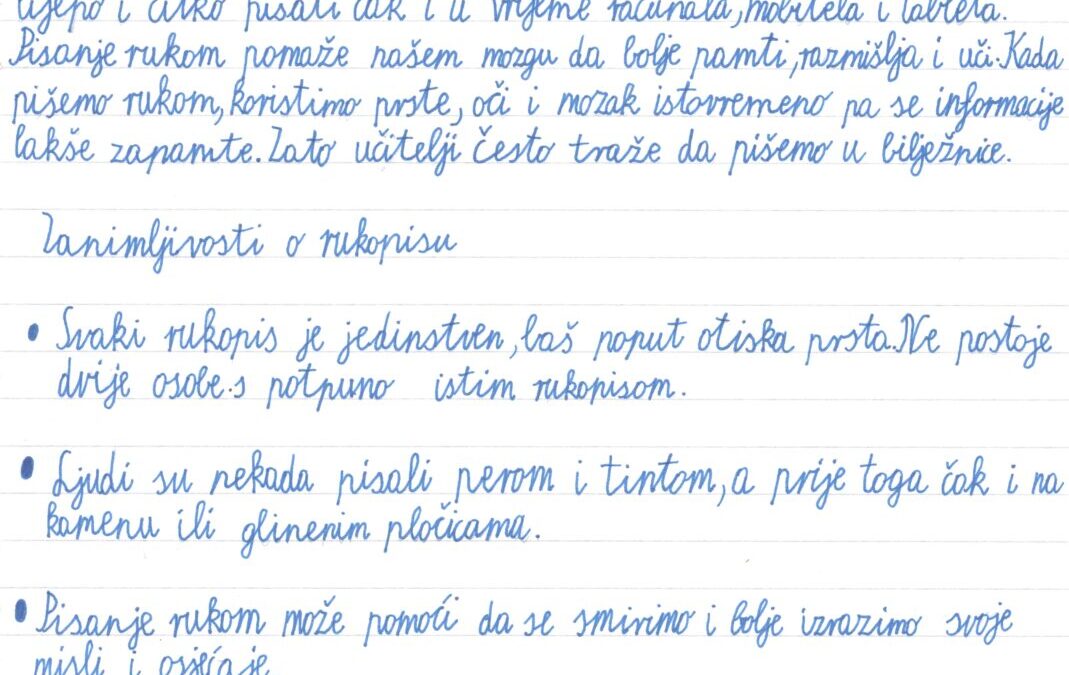 lijepo i čitko pisati čak i u vrijeme računala, mobitela i tableta.
Pisanje rukom pomaže našem mozgu da bolje pamti, razmišlja i uči. Kada
pišemo rukom, koristimo prste, oči i mozak istovremeno pa se informacije
lakše zapamte. Zato učitelji često traže da pišemo u bilježnice.
Zanimljivosti o rukopisu
• Svaki rukopis je jedinstven, baš poput otiska prsta. Ne postoje
dvije osobe s potpuno istim rukopisom.
• Ljudi su nekada pisali perom i tintom, a prije toga čak i na
kamenu ili glinenim pločicama.
• Pisanje rukom može pomoći da se smirimo i bolje izrazimo svoje
misli i osjećaje